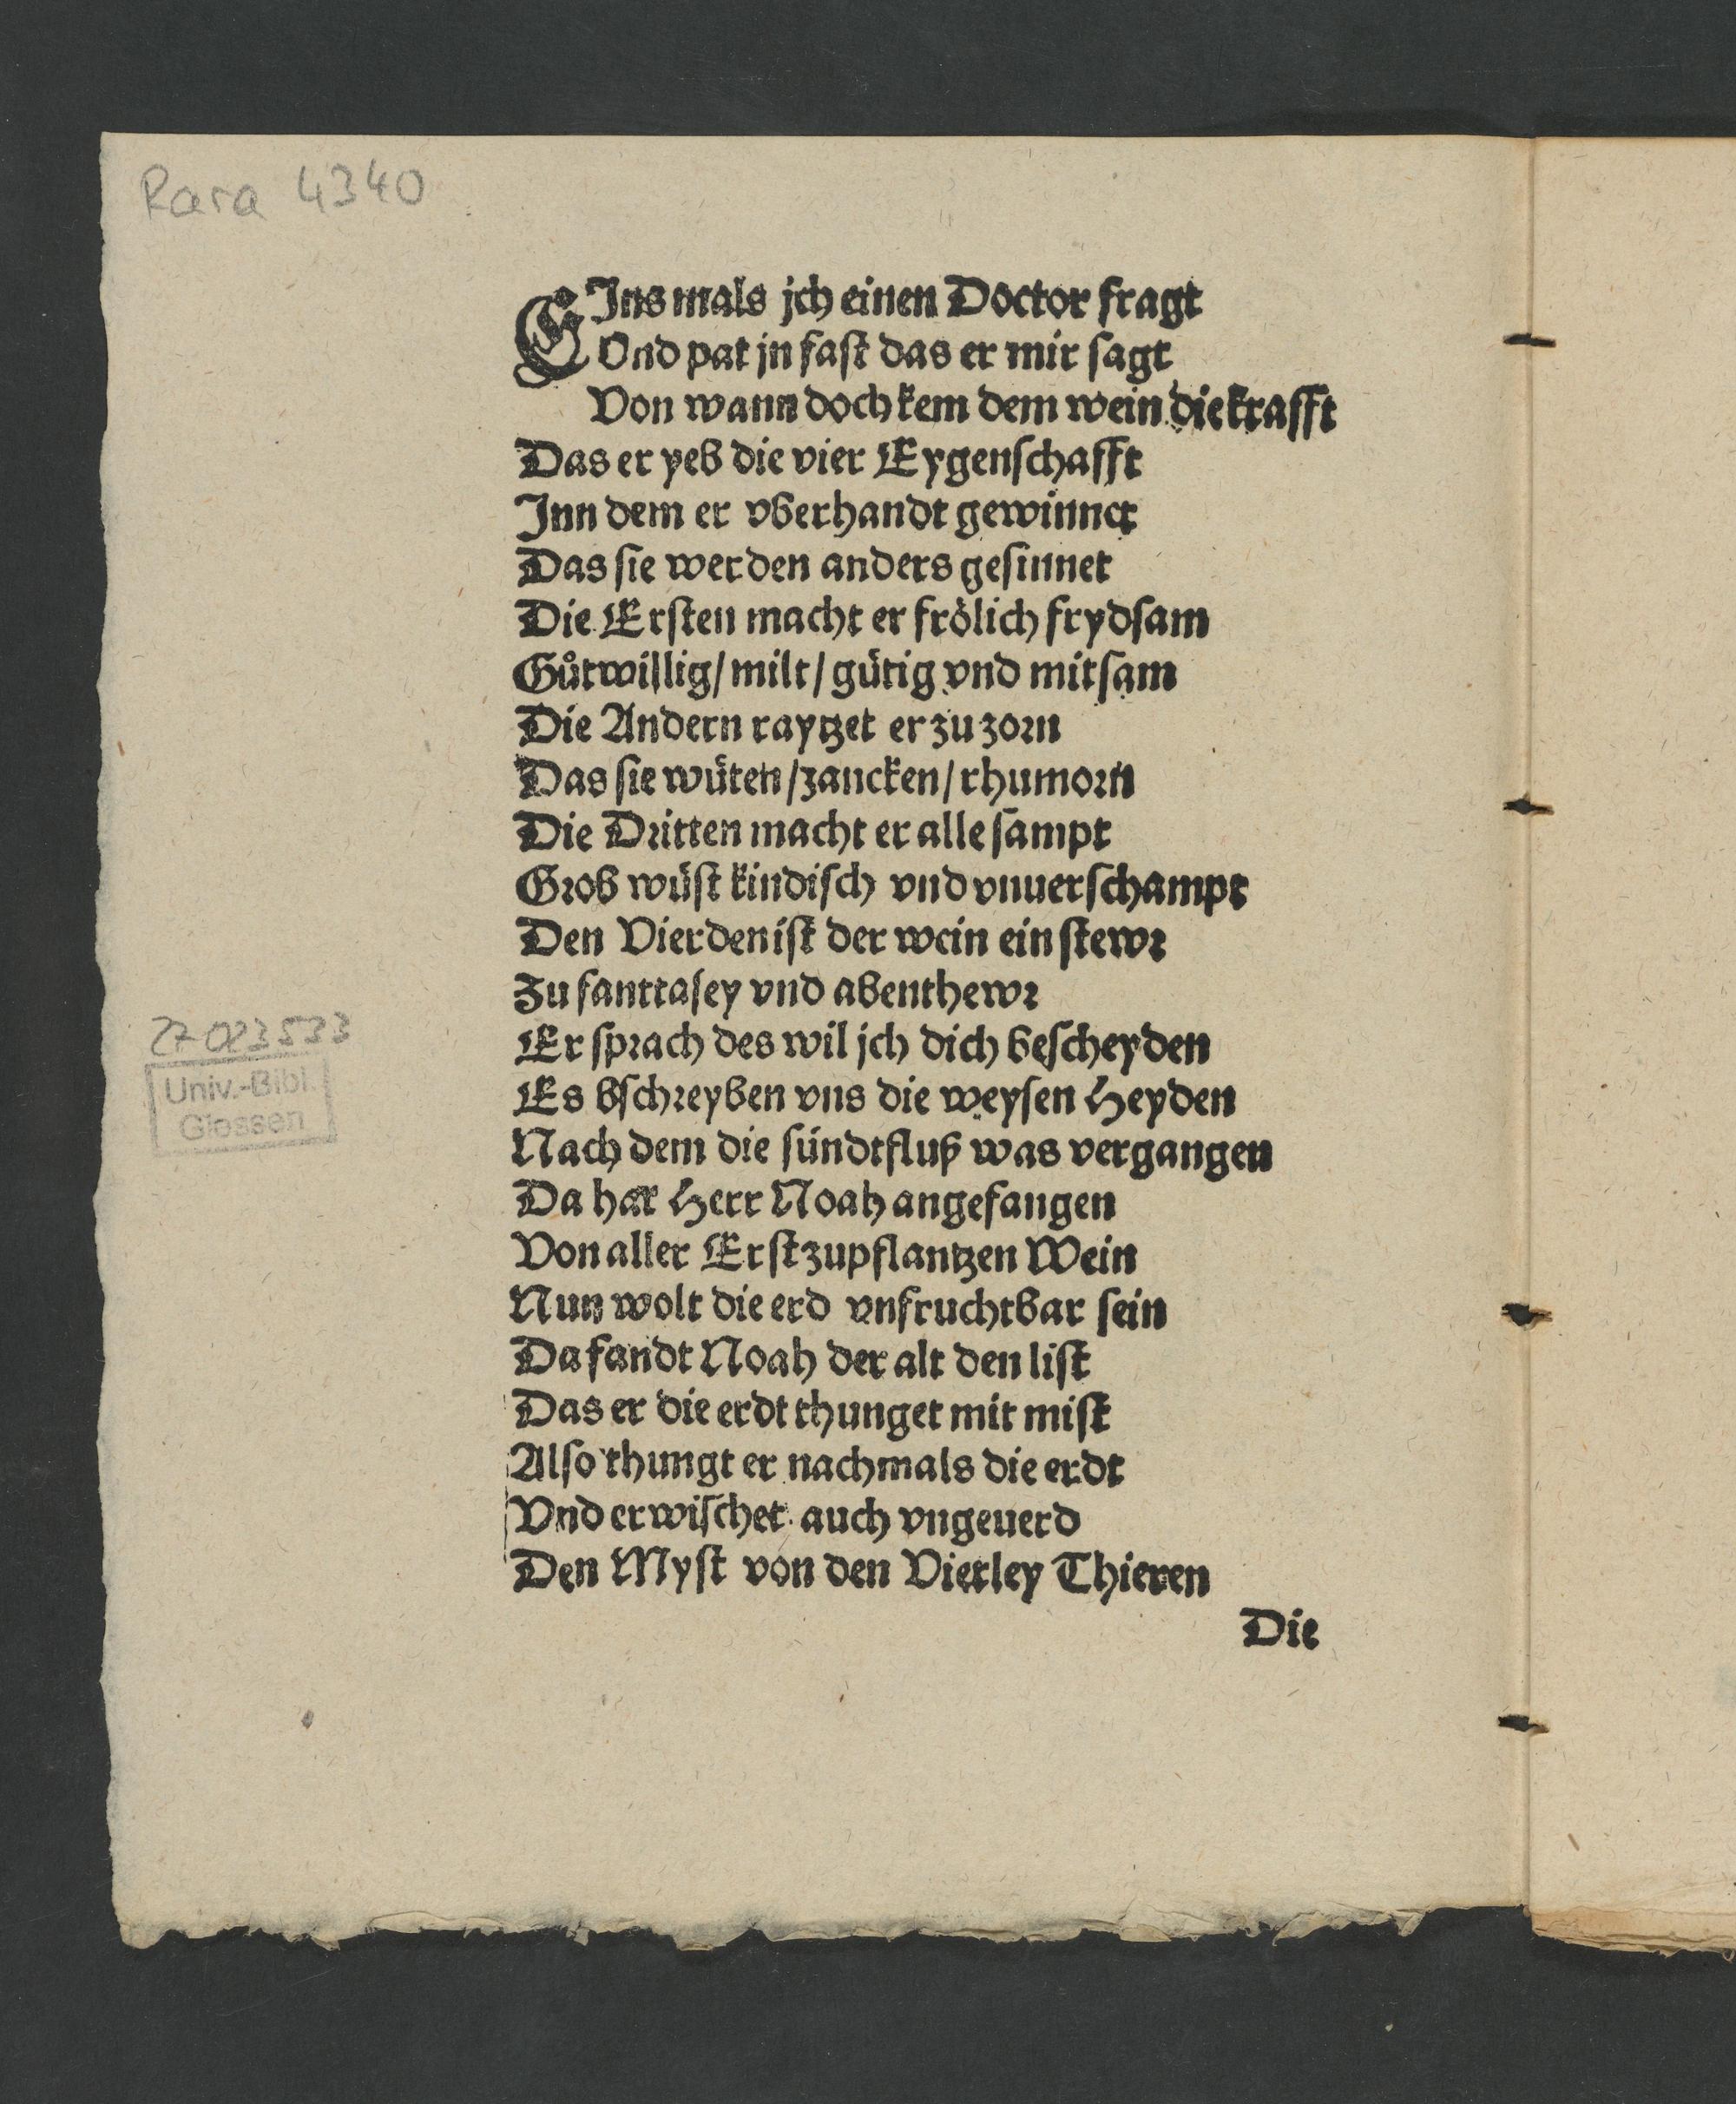 Rara 4340
EIns mals jch einen Doctor fragt
Vnd pat jn fast das er mir sagt
Von wann doch kem dem wein die krafft
Das er yeb die vier Eygenschafft
Inn dem er vberhandt gewinnet
Das sie werden anders gesinnet
Die Ersten macht er frölich frydsam
Gůtwillig/ milt/ gütig vnd mitsam
Die Andern raytzet er zu zorn
Das sie wüten/ zancken/ rhumorn
Die Dritten macht er alle sampt
Grob wüst kindisch vnd vnuerschampt
Den Vierden ist der wein ein stewr
Zu fanttasey vnd abenthewr
Er sprach des wil jch dich bescheyden
Es bschreyben vns die weysen Heyden
Nach dem die sündtfluß was vergangen
Da hat Herr Noah angefangen
Von aller Erst zupflantzen Wein
Nun wolt die erd vnfruchtbar sein
Da fandt Noah der alt den list
Das er die erdt thunget mit mist
Also thungt er nachmals die erdt
Vnd erwischet auch vngeuerd
Den Myst von den Vierley Thieren
Die
27 023 533
Univ.-Bibl.
Giessen